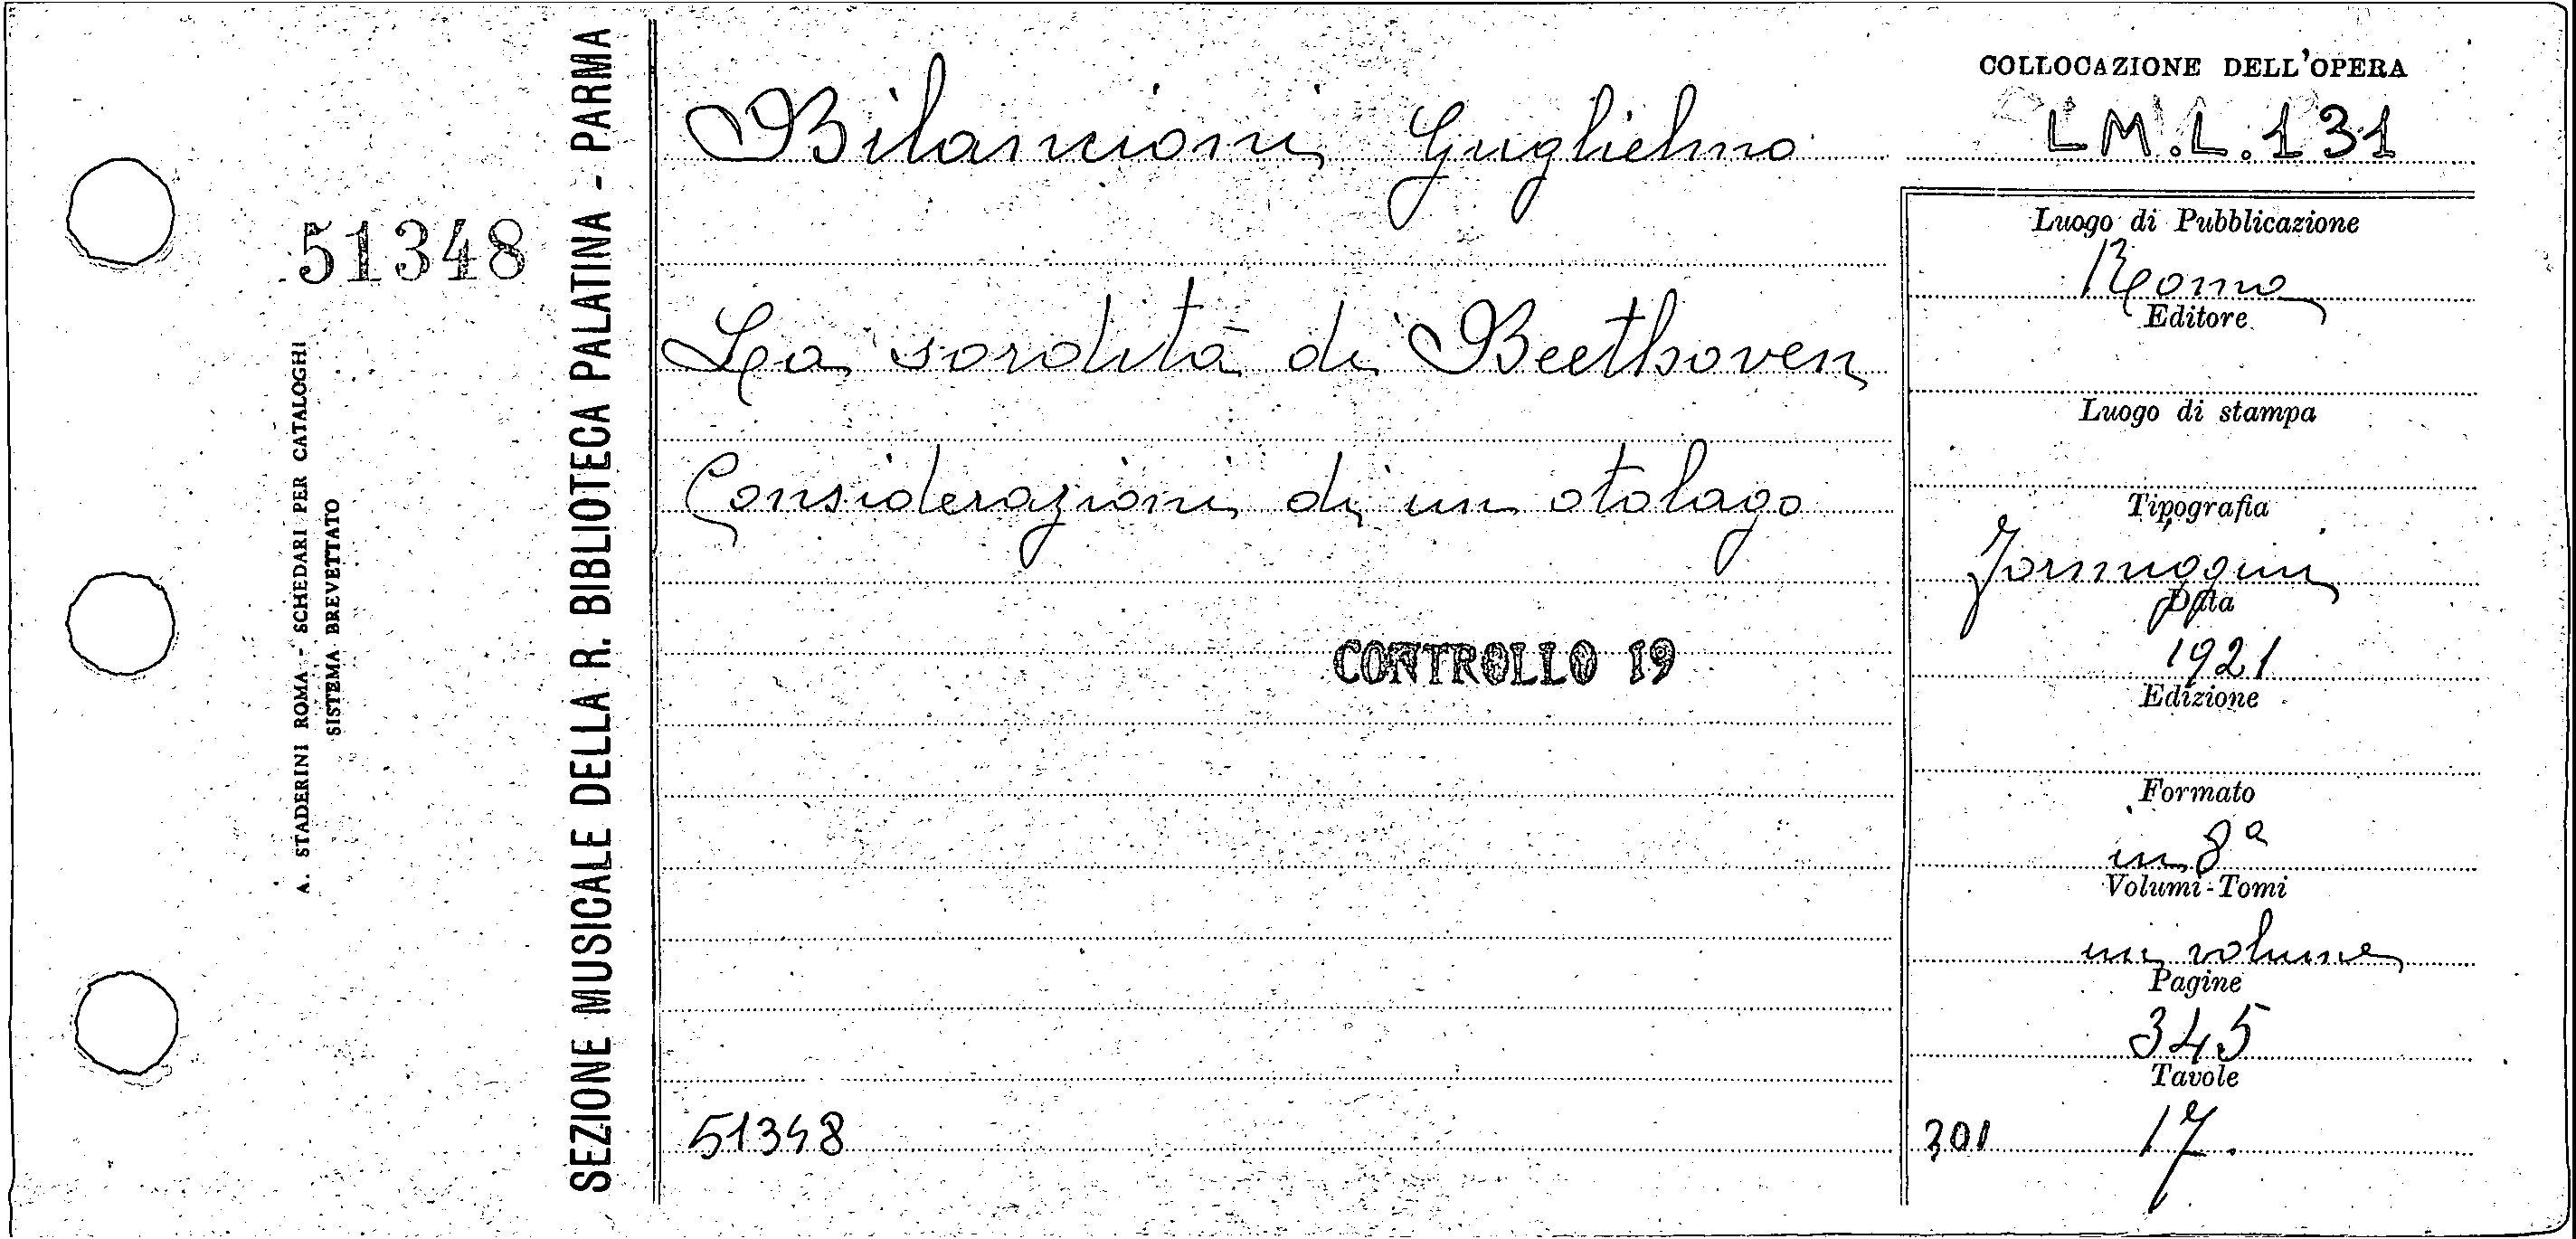 51348
A. STADERINI ROMA - SCHEDARI PER CATALOGHI
SISTEMA BREVETTATO
SEZIONE MUSICALE DELLA R. BIBLIOTECA PALATINA - PARMA
Bilancioni Guglielmo
La sordità di Beethoven
Considerazioni di un otologo
CONTROLLO 19
51348
COLLOCAZIONE DELL'OPERA
L.M.L.131
Luogo di Pubblicazione
Roma
Editore
Luogo di stampa
Tipografia
Formaggini
Data
1921
Edizione
Formato
in 8ª
Volumi-Tomi
un volume
Pagine
345
Tavole
301 17.